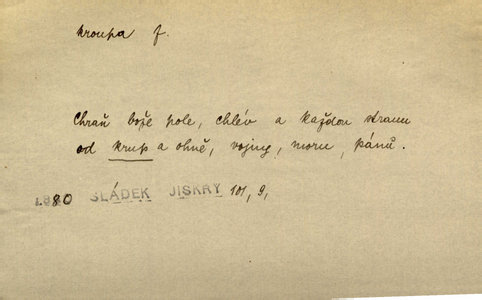 kroupa f.
Chraň bože pole, chlév a každou stranu
od krup a ohně, vojny, moru, pánů.
1880 SLÁDEK JISKRY 101, 9,